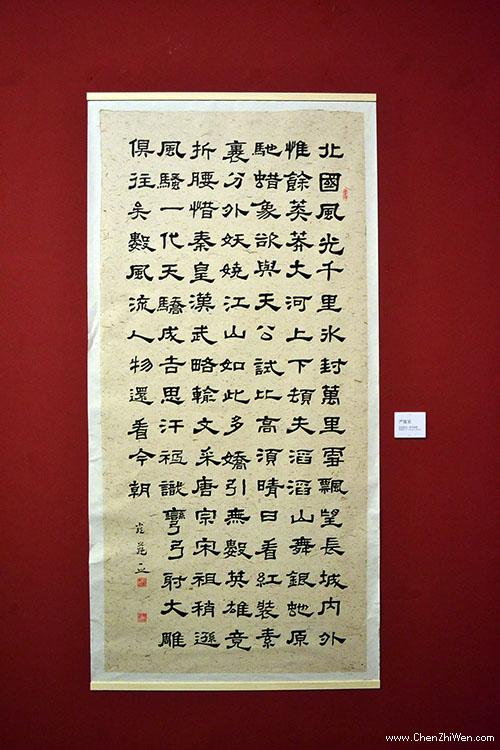 北國風光千里氷封萬里雪飄望長城内外
惟餘莽莽大河上下頓失滔滔山舞銀虵原
馳蜡象欲與天公試比高須晴日看紅裝素
裹分外妖嬈江山如此多嬌引無數英雄竞
折腰惜秦皇漢武略輸文采唐宗宋祖稍遜
風騷一代天驕成吉思汗祗識彎弓射大雕
俱往矣數風流人物還看今朝
www.ChenZhiWen.com